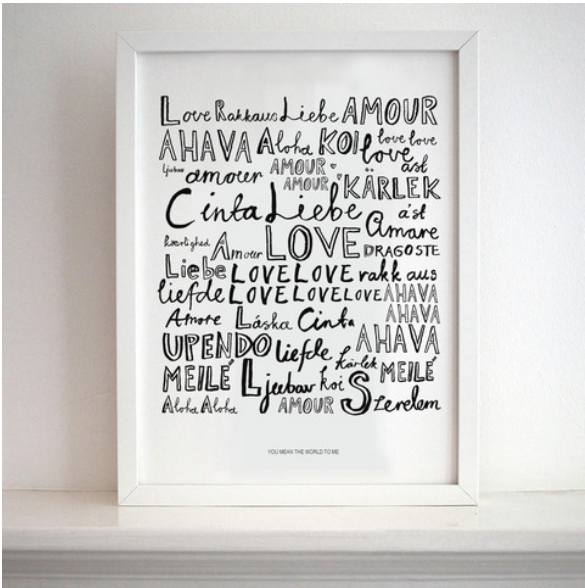 Love Rakkaus Liebe AMOUR
AHAVA Aloha KOI love love
ljubav amour AMOUR love ast
AMOUR KÄRLEK
Cinta Liebe a'st
kærlighed Amour LOVE Amare
DRAGOSTE
Liebe LOVE LOVE rakkaus
liefde LOVE LOVE LOVE AHAVA
Amore Láska Cinta AHAVA
UPENDO liefde AHAVA
MEILÉ Ljubav koi kärlek MEILÉ
Aloha Aloha AMOUR Szerelem
YOU MEAN THE WORLD TO ME